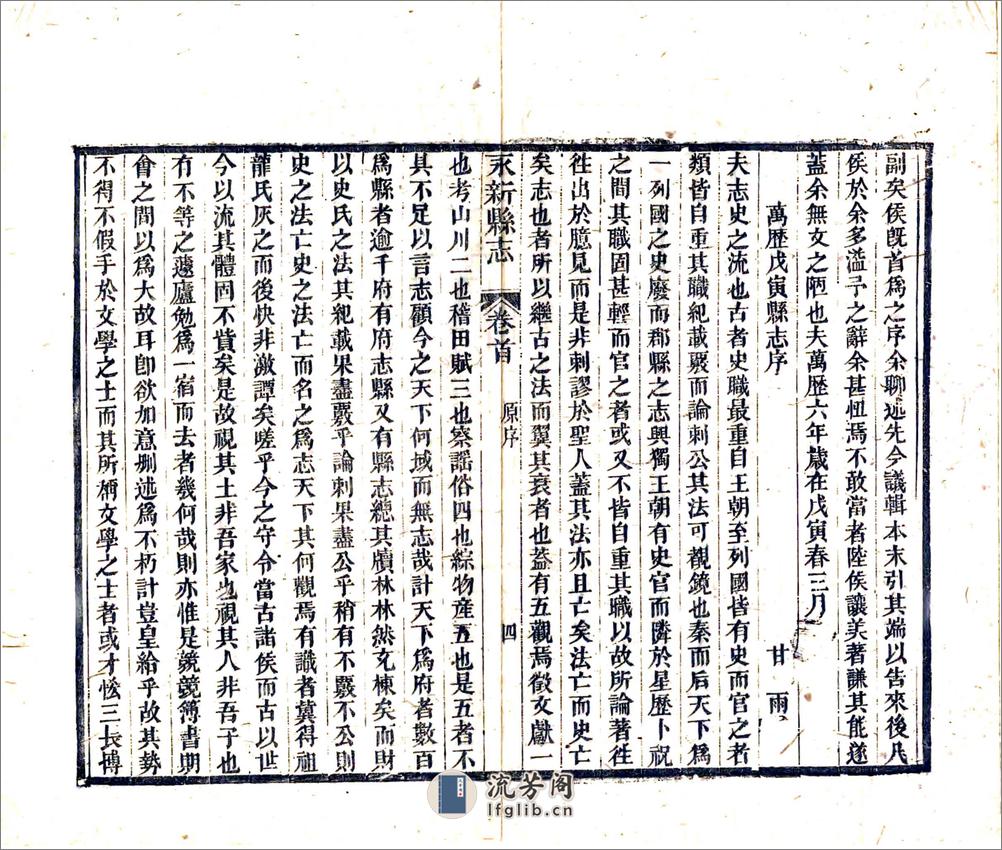 副矣侯既首爲之序余聊述先今議輯本末引其端以告來後凡
侯於余多溢予之辭余甚恧焉不敢當者陸侯讓美著謙其能遂
蓋余無文之陋也夫萬歷六年歲在戊寅春三月
萬歷戊寅縣志序
甘雨
夫志史之流也古者史職最重自王朝至列國皆有史而官之者
類皆自重其職紀載覈而論刺公其法可觀鏡也秦而后天下爲
一列國之史廢而郡縣之志興獨王朝有史官而隣於星歷卜祝
之間其職固甚輕而官之者或又不皆自重其職以故所論著徃
徃出於臆見而是非刺謬於聖人蓋其法亦且亡矣法亡而史亡
矣志也者所以繼古之法而翼其衰者也益有五觀焉徵文獻一
永新縣志
卷首
原序
四
也考山川二也稽田賦三也察謡俗四也綜物産五也是五者不
具不足以言志顧今之天下何域而無志哉計天下爲府者數百
爲縣者逾千府有府志縣又有縣志總其牘林林然充棟矣而財
以史氏之法其紀載果盡覈乎論刺果盡公乎稍有不覈不公則
史之法亡史之法亡而名之爲志天下其何觀焉有識者冀得祖
龍氏灰之而後快非激譚矣嗟乎今之守令當古諸侯而古以世
今以流其體固不貲矣是故視其土非吾家也視其人非吾子也
有不等之蘧廬勉爲一宿而去者幾何哉則亦惟是兢兢簿書期
會之間以爲大故耳卽欲加意刪述爲不朽計豈皇給乎故其勢
不得不假手於文學之士而其所稱文學之士者或才忪三長博
流芳阁
lfglib.cn